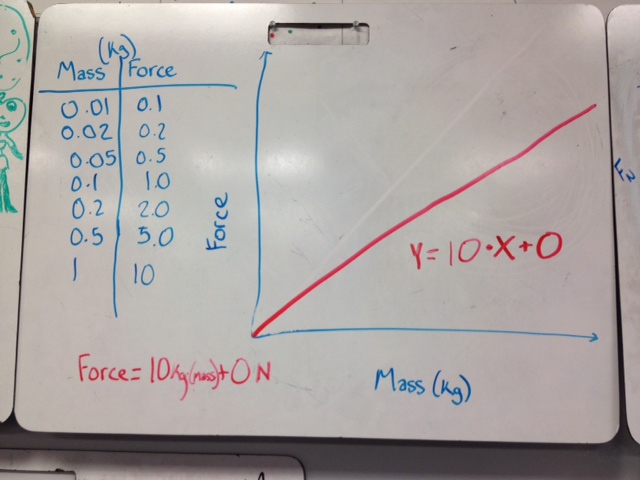 (Kg)
Mass Force
0.01 0.1
0.02 0.2
0.05 0.5
0.1 1.0
0.2 2.0
0.5 5.0
1 10
Force
Y = 10 • X + 0
Force = 10 Kg (mass) + 0 N
Mass (Kg)